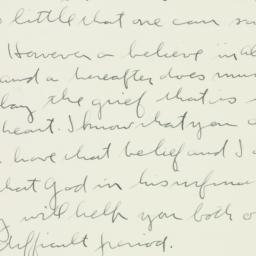 little that one can
However a believe in
and a hereafter does
the grief that is
heart. I know that you
have that belief and I
that God in his
will help you both
difficult period.